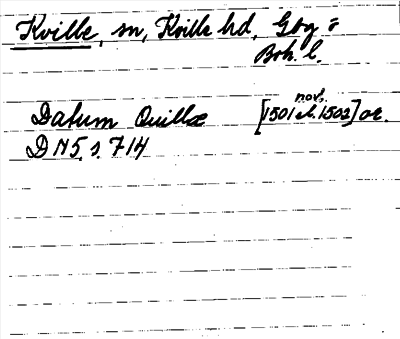 Kville, sn, Kville hd, Gbg o
Boh. l.
nov.
Datum Quillæ [1501 el. 1502] or.
DN 5 s. 714